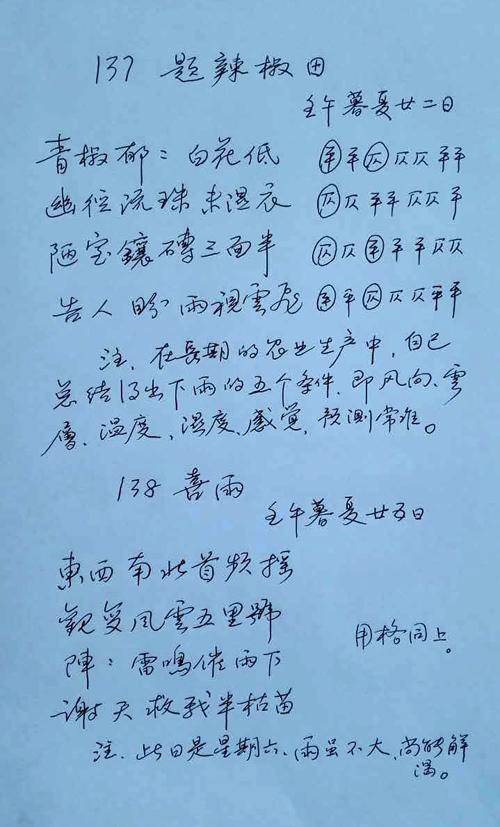 137 题辣椒田
壬午暮夏廿二日
青椒郁：白花低 平平仄仄仄平平
幽径流珠未湿衣 仄仄平平仄仄平
陋室镶磚三面半 仄仄平平平仄仄
告人盼雨視雲飛 平平仄仄仄平平
注，在長期的农业生产中，自己
总结得出下雨的五个条件，即风向、雲
層、温度、湿度、感觉，预测常准。
138 喜雨
壬午暮夏廿五日
東西南北首频摇
觀变风雲五里號
陣：雷鳴催雨下
谢天救我半枯苗
用格同上。
注，此日是星期六，雨虽不大，尚能解
渴。